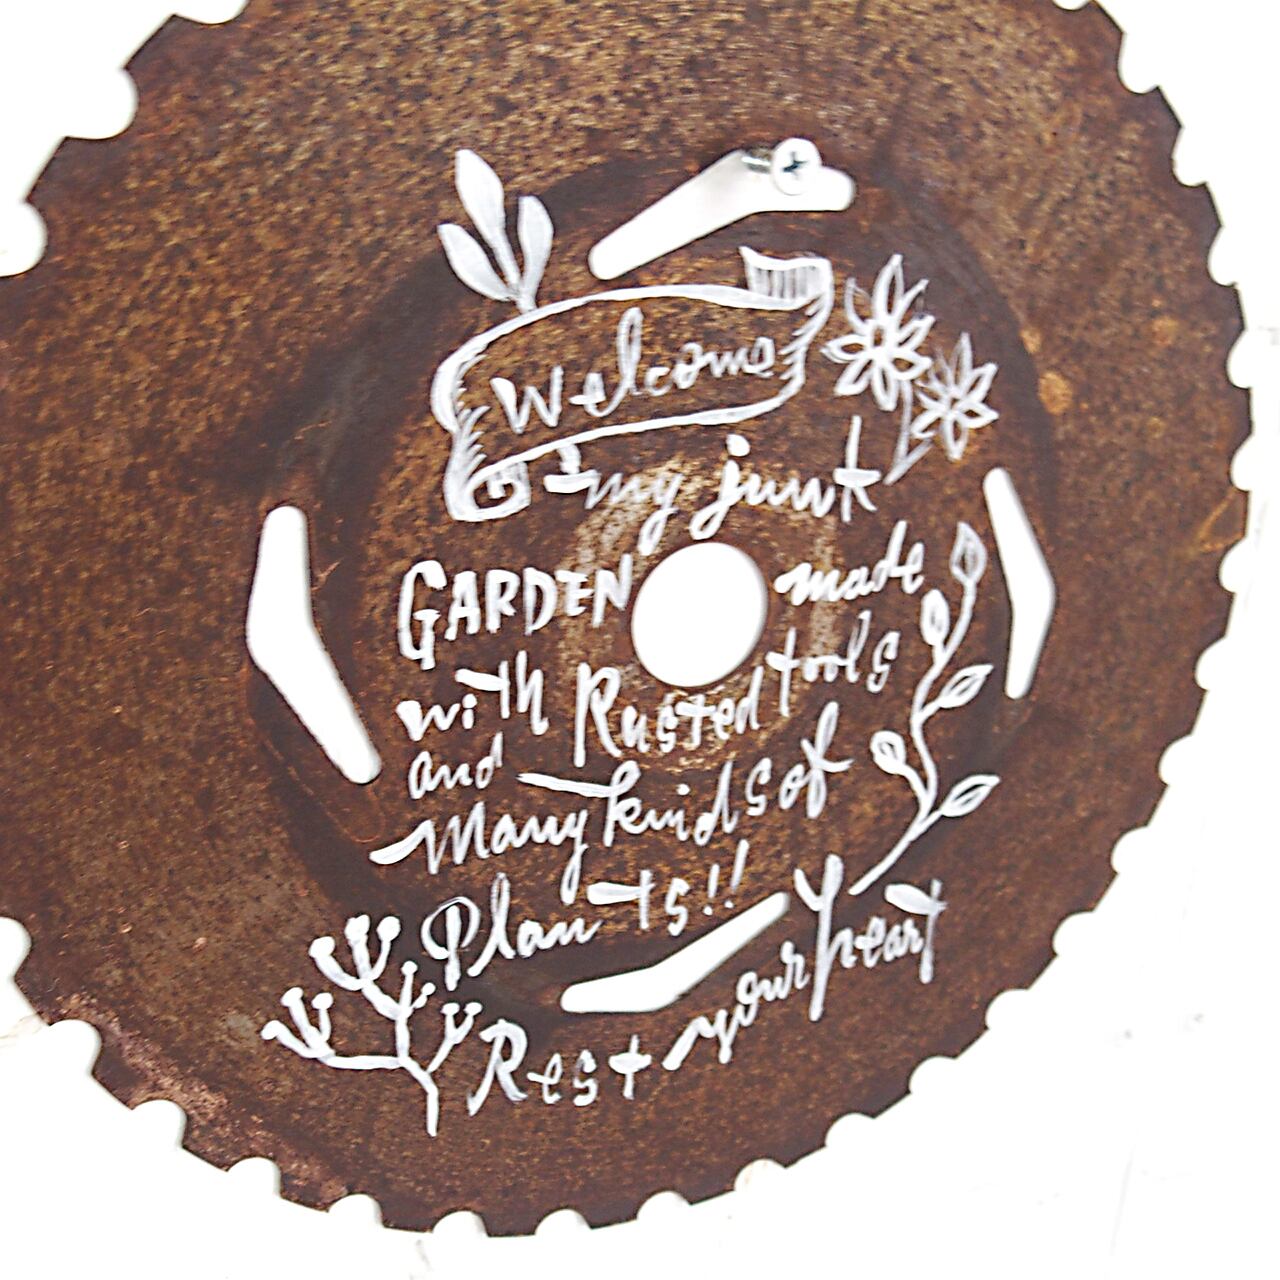 Welcome
to my junk
GARDEN made
with Rusted tools
and
Many kinds of
Plants!!
Rest your heart